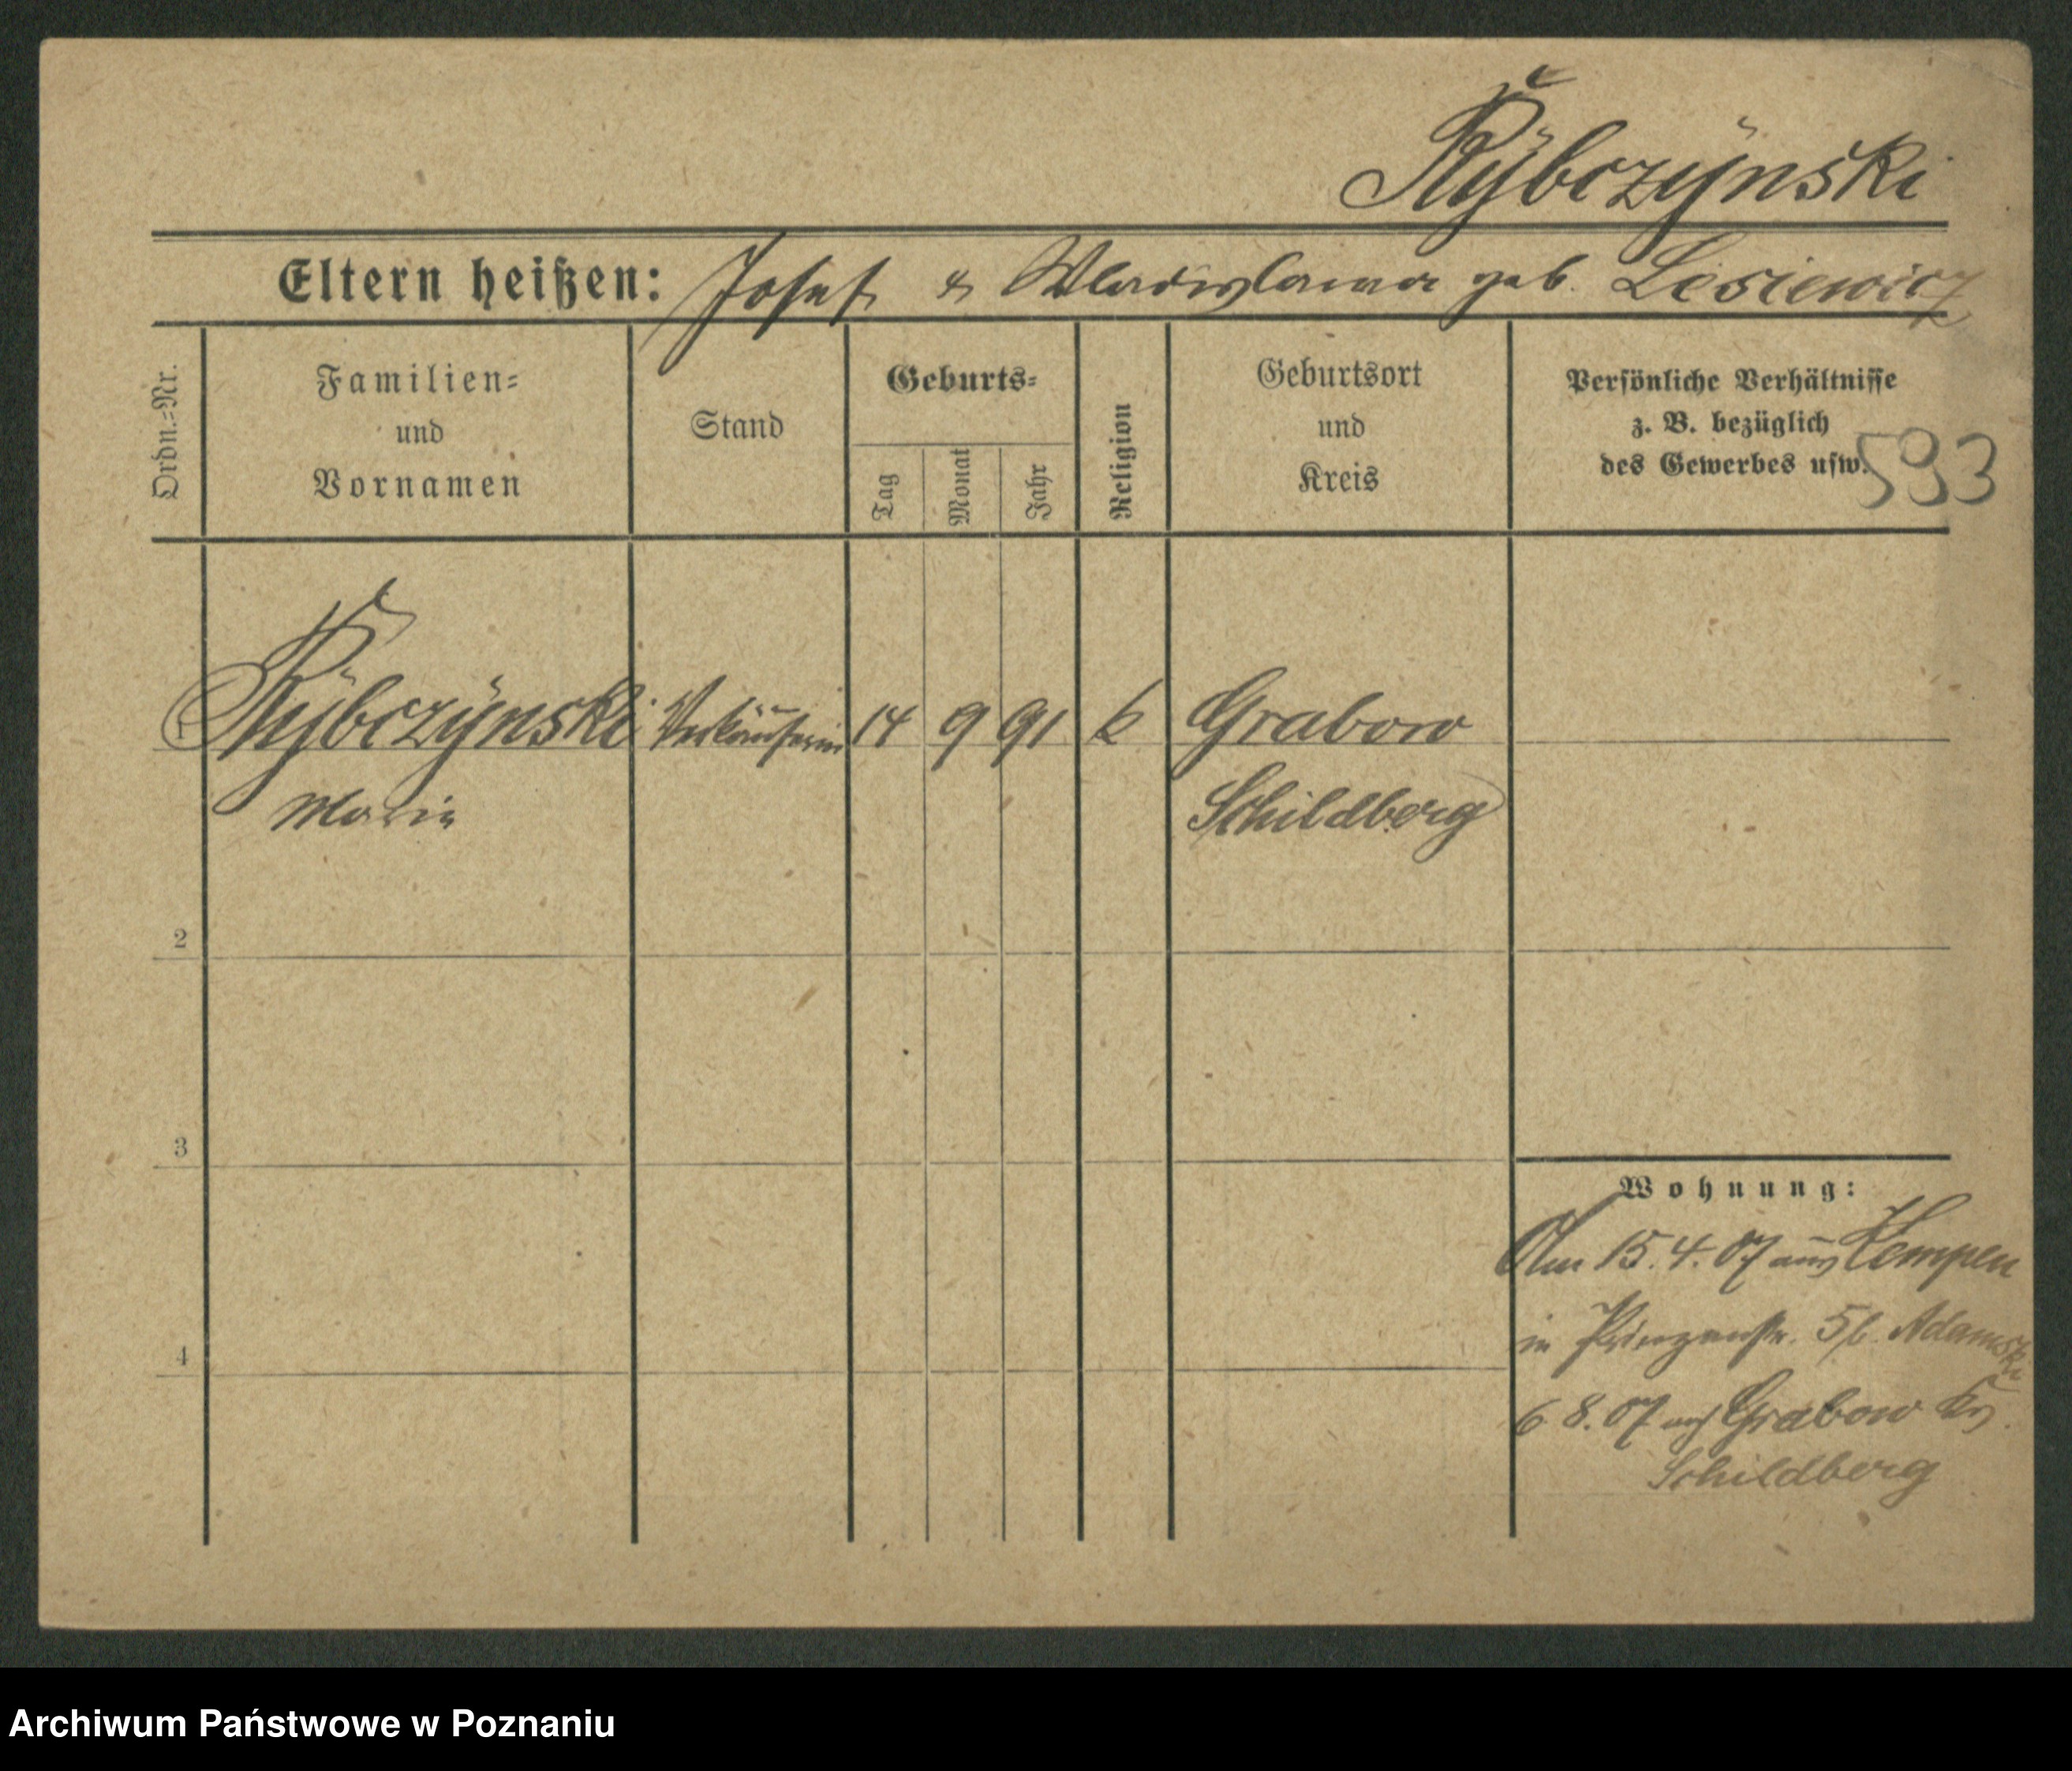 Rÿbczÿnski
Eltern heißen: Josef & Wladislawa geb. Lesiewicz
Ordn.=Nr.
Familien=
und
Vornamen
Stand
Geburts=
Tag
Monat
Jahr
Religion
Geburtsort
und
Kreis
Persönliche Verhältnisse
z. B. bezüglich
des Gewerbes usw.
593
1 Rÿbczÿnski Verkäuferin 14 9 91 k Grabow
Marie Schildberg
2
3
4
Wohnung:
Am 15.4.07 aus Kempen
in Prinzenstr. 5 b. Adamski
6.8.07 nach Grabow Krs.
Schildberg
Archiwum Państwowe w Poznaniu